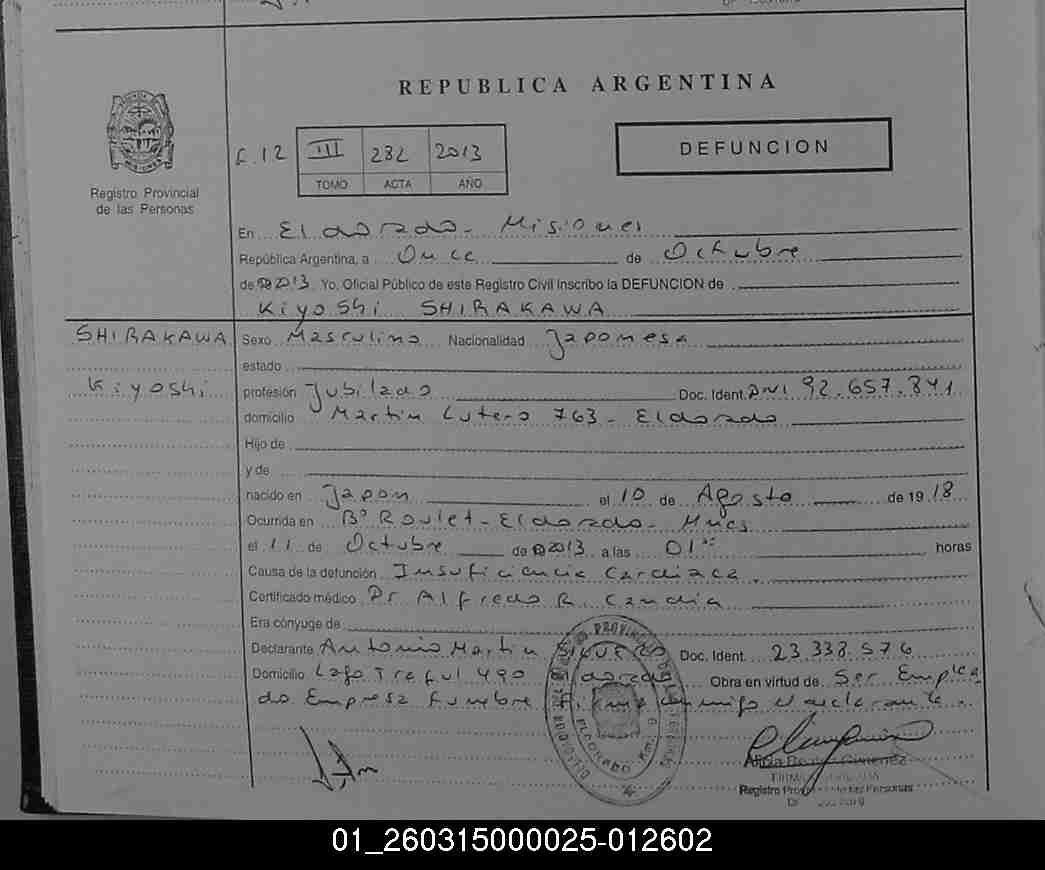 REPUBLICA ARGENTINA
F. 12 III 232 2013
TOMO ACTA AÑO
DEFUNCION
Registro Provincial
de las Personas
En Eldorado - Misiones
República Argentina, a Once de Octubre
de 2013 Yo, Oficial Público de este Registro Civil inscribo la DEFUNCION de
Kiyoshi SHIRAKAWA
SHIRAKAWA Sexo Masculino Nacionalidad Japonesa
estado
Kiyoshi profesión Jubilado Doc. Ident. DNI 92.657.841
domicilio Martin Lutero 763 - Eldorado
Hijo de
y de
nacido en Japon el 10 de Agosto de 19 18
Ocurrida en Bº Roulet - Eldorado - Mnes
el 11 de Octubre de 2013 a las 01 horas
Causa de la defunción Insuficiencia Cardiaca
Certificado médico Dr Alfredo R. Candia
Era cónyuge de
Declarante Antonio Martin Doc. Ident. 23.338.576
Domicilio Lago Traful 490 Eldorado Obra en virtud de Ser Emplea
do Empresa Funebre Firma conmigo el declarante.
ELDORADO Km. 9
Registro de las Personas
01_260315000025-012602